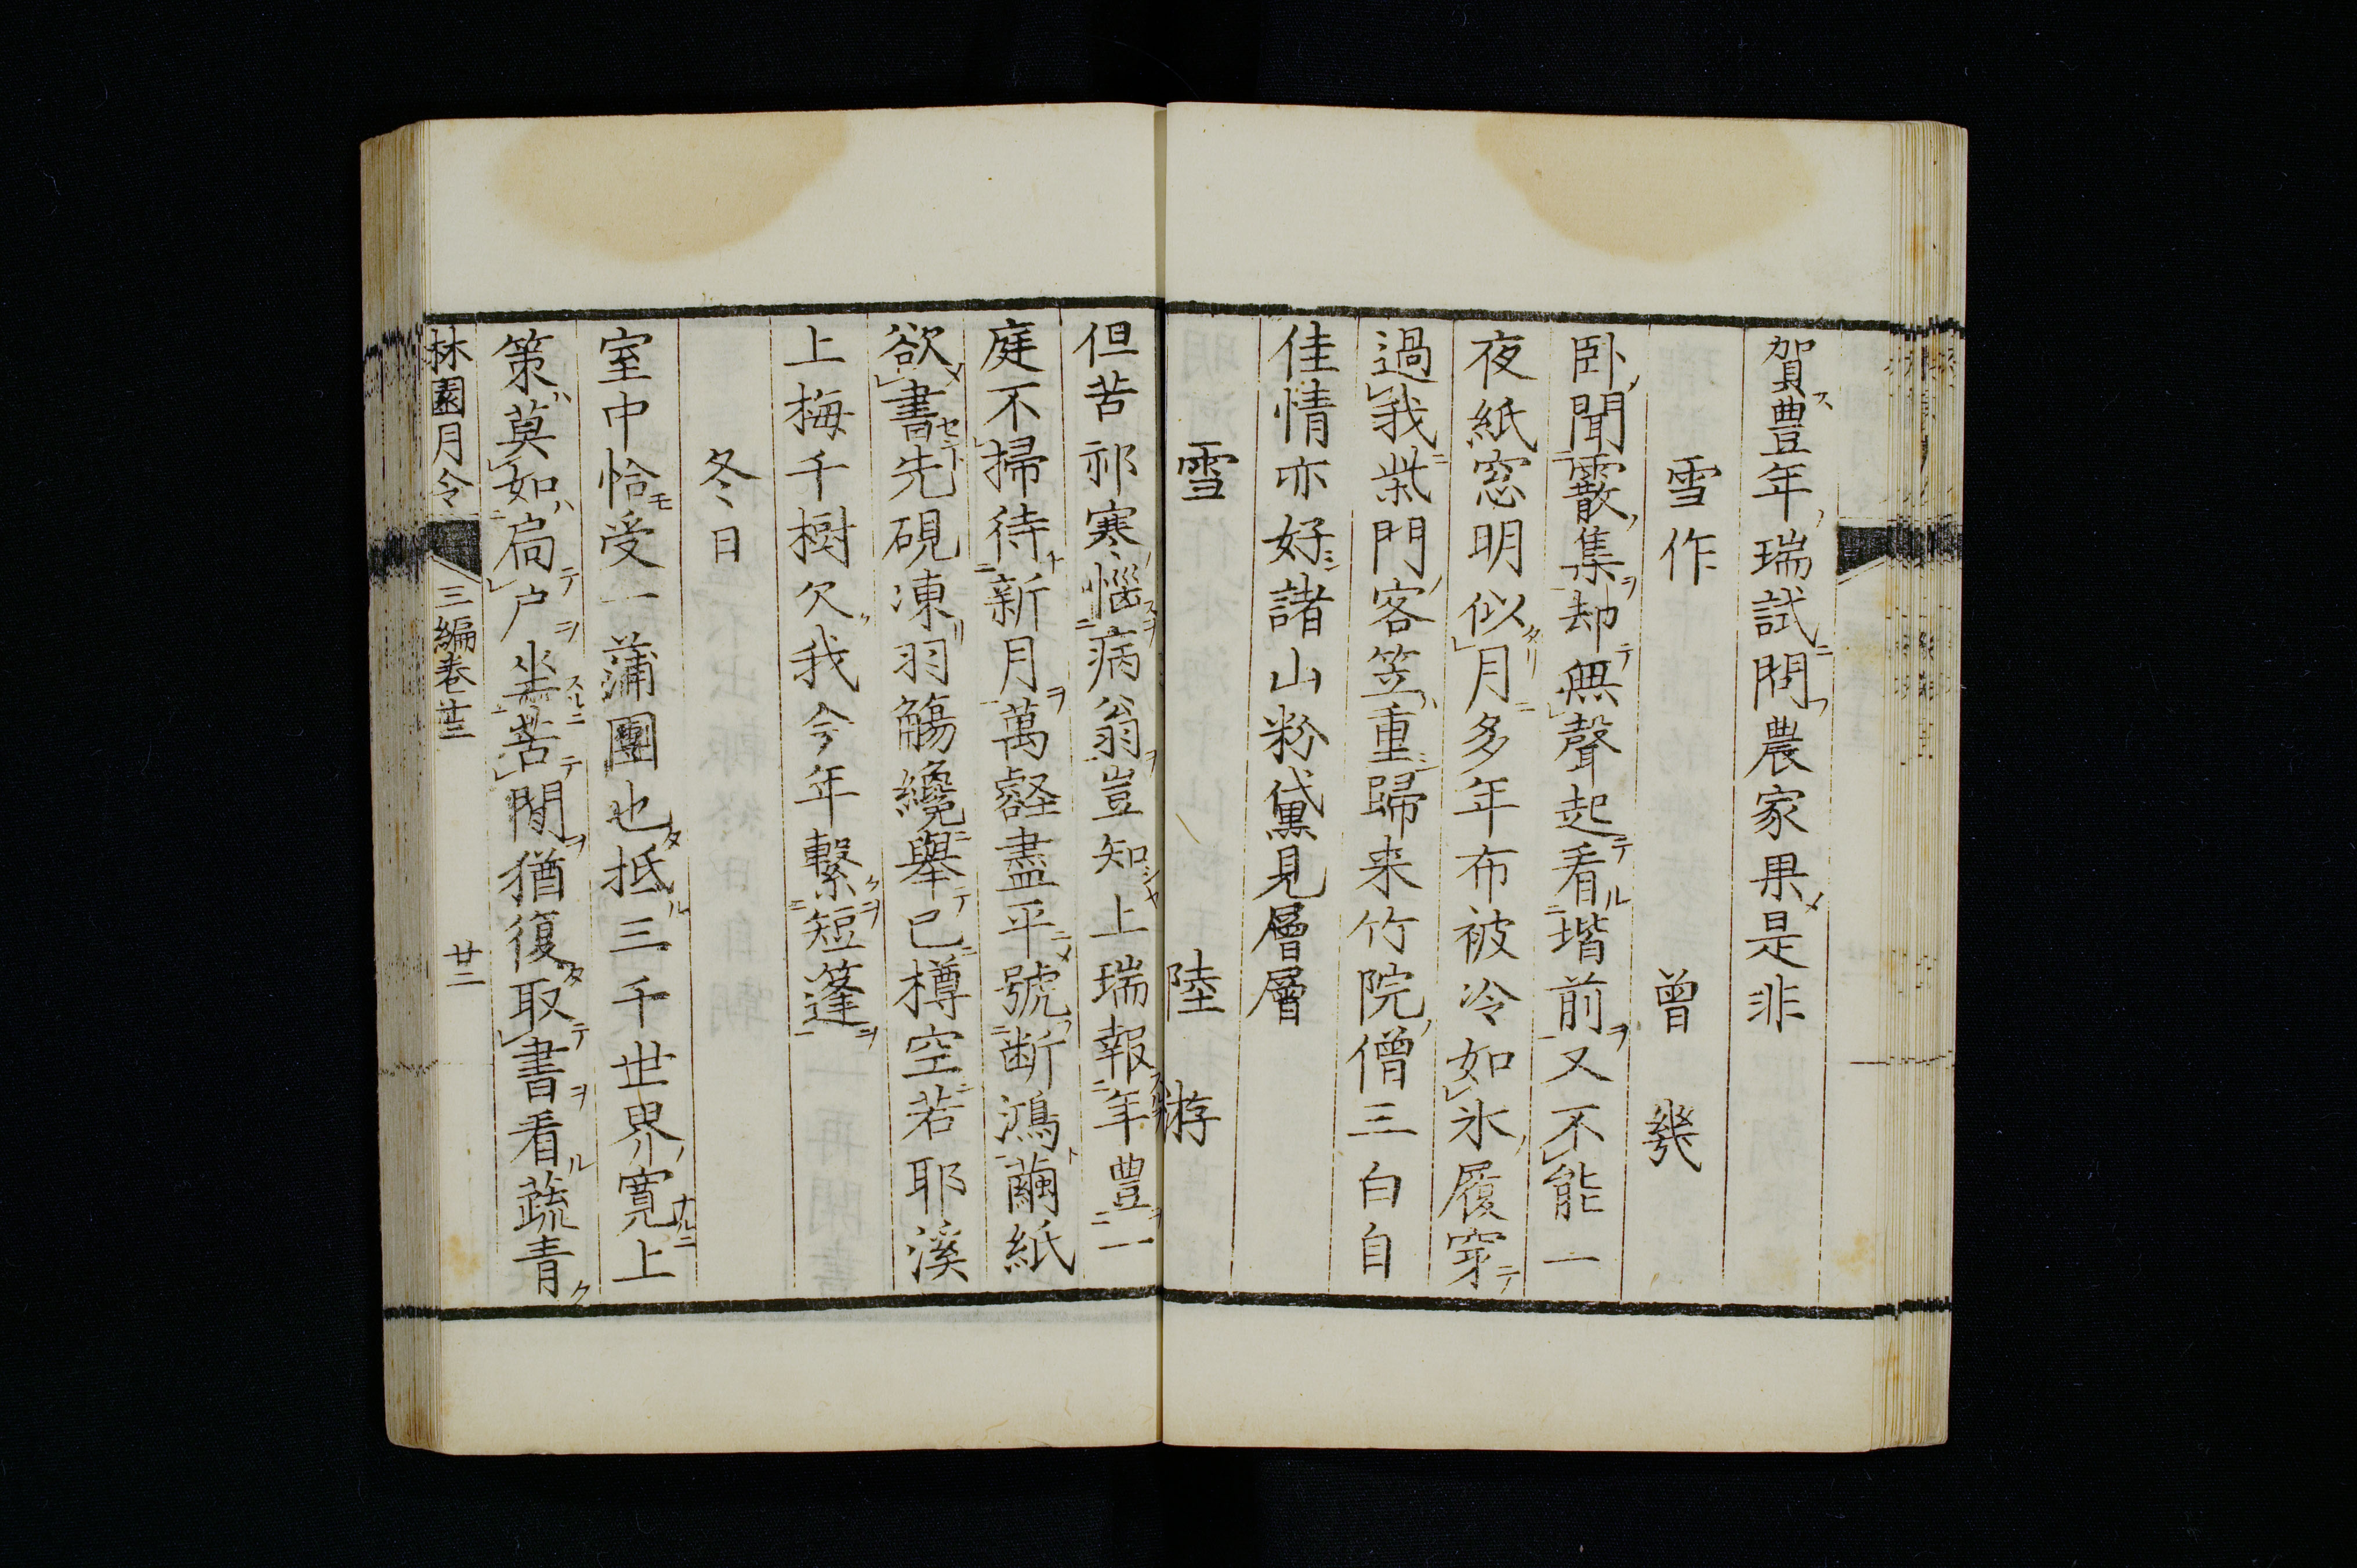 賀豊年瑞試問農家果是非
雪作 曾幾
卧聞霰集却無聲起看堦前又不能一
夜紙窓明似月多年布被冷如氷履穿
過我柴門客笠重歸来竹院僧三白自
佳情亦好諸山粉黛見層層
雪 陸游
但苦祁寒惱病翁豈知上瑞報年豊一
庭不掃待新月萬壑盡平號断鴻繭紙
欲書先硯凍羽觴纔舉已樽空若耶溪
上梅千樹欠我今年繫短篷
冬日
室中恰受一蒲團也抵三千世界寛上
策莫如扃户坐苦閒猶復取書看蔬青
林園月令 三編巻廿三 廿二